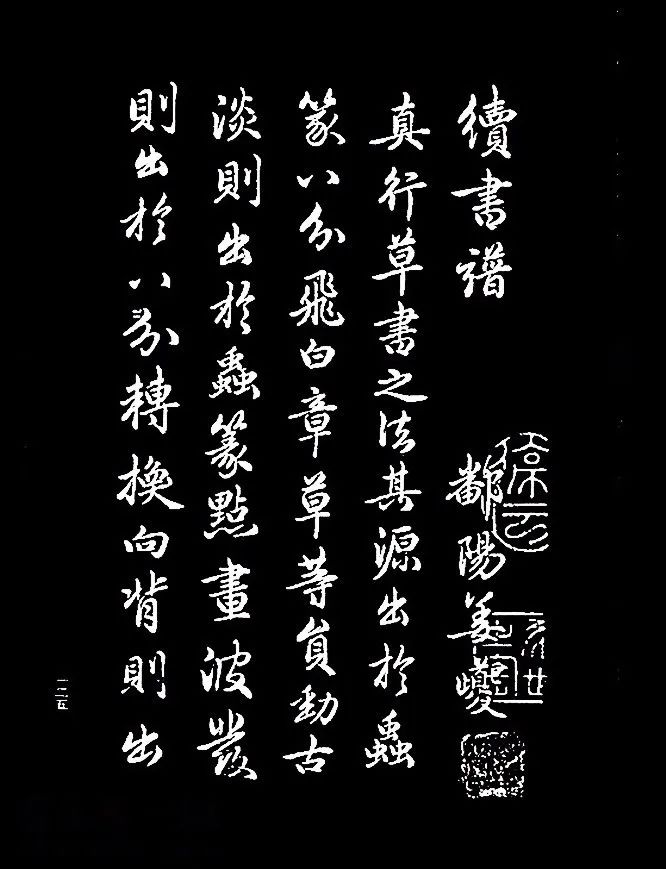 續書譜 鄱陽姜夔
真行草書之法其源出於蟲
篆八分飛白章草等負勁古
淡則出於蟲篆點畫波發
則出於八分轉換向背則出
一二五